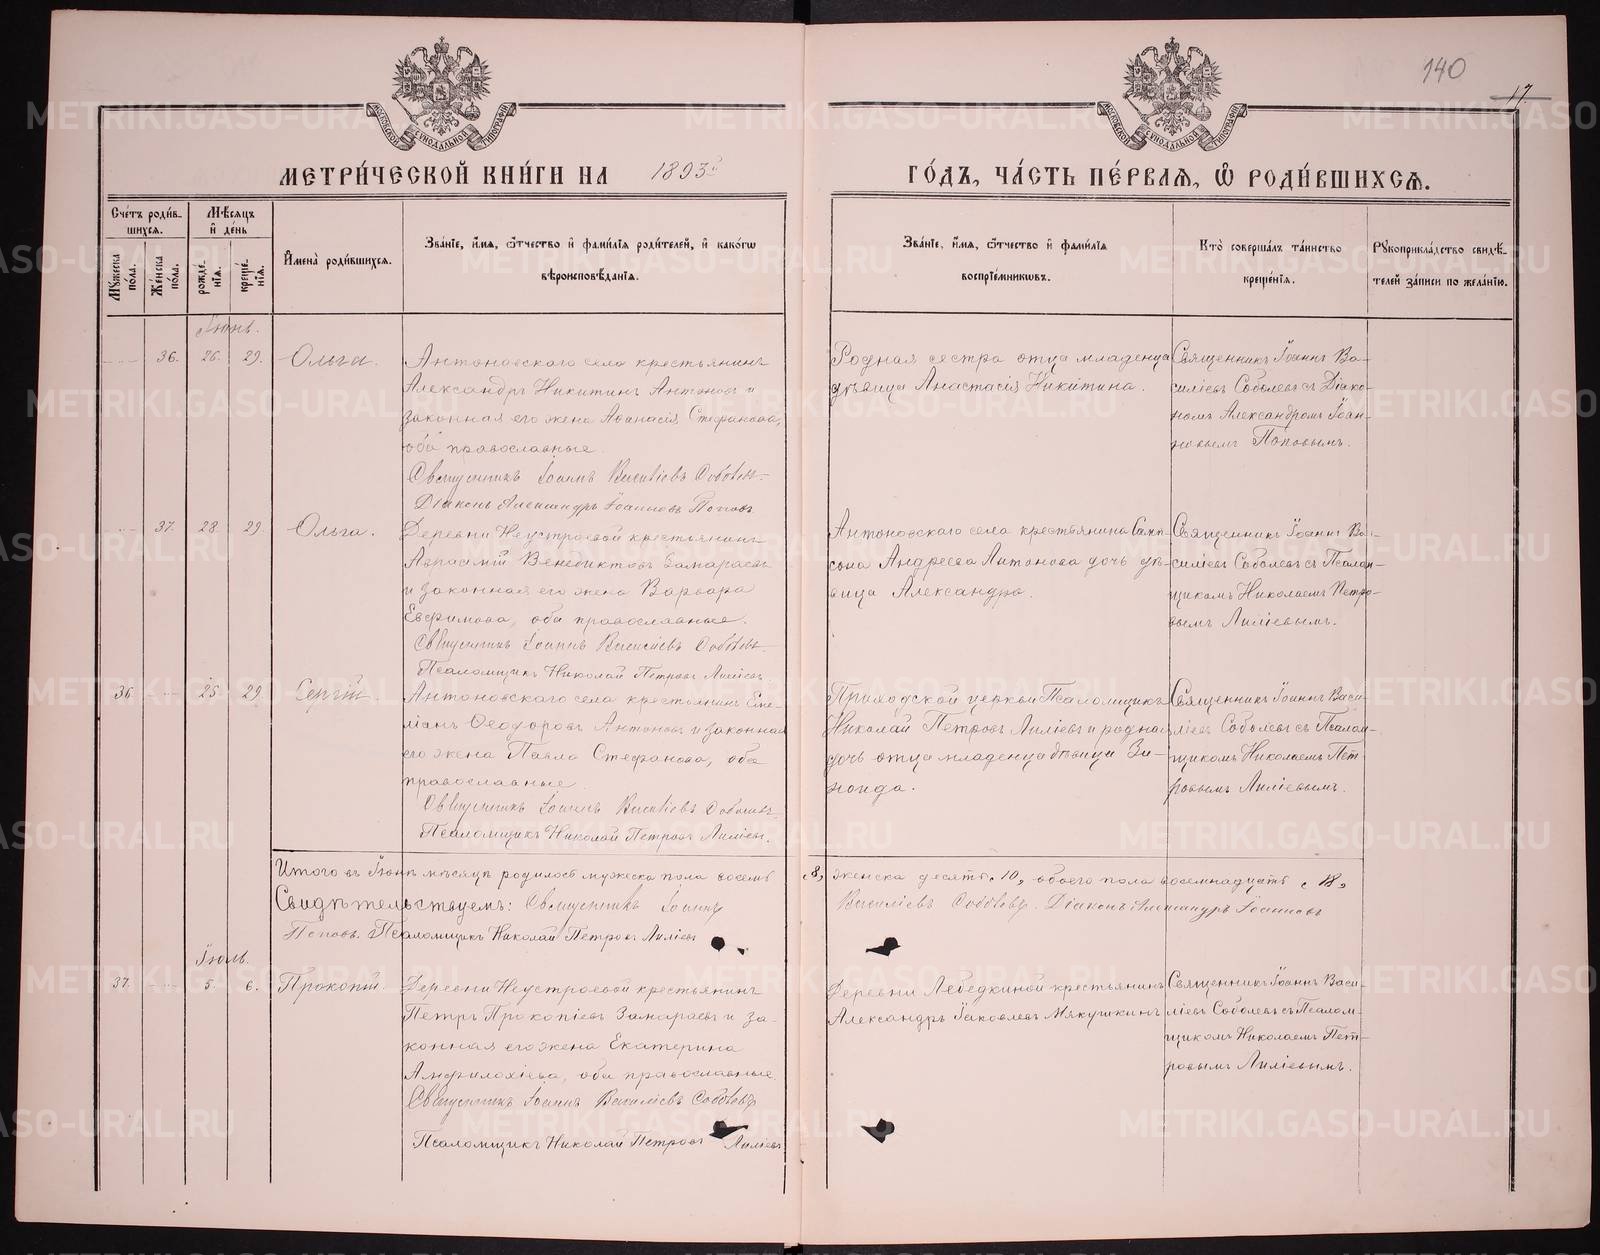 140
17.
МОСКОВСКОЙ СѴНОДАЛЬНОЙ ТИПОГРАФІИ
МОСКОВСКОЙ СѴНОДАЛЬНОЙ ТИПОГРАФІИ
МЕТРИ́ЧЕСКОЙ КНИ́ГИ НА 1893й
ГО́ДЪ, ЧА́СТЬ ПЕ́РВАѦ, Ѡ҆ РОДИ́ВШИХСѦ.
Сче́тъ роди́в-
шихся.
Мѣ́сяцъ
и҆ де́нь
Мꙋ́жеска по́ла.
Же́нска по́ла.
рожде́-
нїя.
креще́-
нїя.
И҆мена̀ роди́вшихся.
Зва́нїе, и҆́мя, ѻ҆́тчество и҆ фами́лїя роди́телей, и҆ како́гѡ
вѣроисповѣ́данїя.
Зва́нїе, и҆́мя, ѻ҆́тчество и҆ фами́лїя
воспрїе́мникѡвъ.
Кто̀ соверша́лъ та́инство
креще́нїя.
Рꙋкоприкла́дство свидѣ́-
телей за́писи по жела́нїю.
Іюнь.
36. 26. 29. Ольга.
Антоновскаго села крестьянинъ
Александръ Никитинъ Антоновъ и
законная его жена Аѳанасія Стефанова,
оба православные.
Священникъ Іоаннъ Василіевъ Соболевъ
Діаконъ Александръ Іоанновъ Поповъ
Родная сестра отца младенца
дѣвица Анастасія Никитина.
Священникъ Іоаннъ Ва-
силіевъ Соболевъ съ Діако-
номъ Александромъ Іоан-
новымъ Поповымъ.
37. 28. 29. Ольга.
Деревни Неустроевой крестьянинъ
Аврамій Венедиктовъ Замараевъ
и законная его жена Варвара
Евфимова, оба православные.
Священникъ Іоаннъ Василіевъ Соболевъ
Псаломщикъ Николай Петровъ Лиліевъ
Антоновскаго села крестьянина Самп-
сона Андреева Антонова дочь дѣ-
вица Александра.
Священникъ Іоаннъ Ва-
силіевъ Соболевъ съ Псалом-
щикомъ Николаемъ Петро-
вымъ Лиліевымъ.
36. 25. 29. Сергій.
Антоновскаго села крестьянинъ Еме-
ліанъ Ѳеодоровъ Антоновъ и законная
его жена Павла Стефанова, оба
православные.
Священникъ Іоаннъ Василіевъ Соболевъ
Псаломщикъ Николай Петровъ Лиліевъ.
Приходской церкви Псаломщикъ
Николай Петровъ Лиліевъ и родная
дочь отца младенца дѣвица Зи-
наида.
Священникъ Іоаннъ Васи-
ліевъ Соболевъ съ Псалом-
щикомъ Николаемъ Пет-
ровымъ Лиліевымъ.
Итого въ Іюнѣ мѣсяцѣ родилось мужеска пола восемь „8„ женска десять „10„ обоего пола восемнадцать „18„
Свидѣтельствуемъ: Священникъ Іоаннъ Василіевъ Соболевъ. Діаконъ Александръ Іоанновъ
Поповъ. Псаломщикъ Николай Петровъ Лиліевъ
Іюль.
37. 5. 6. Прокопій.
Деревни Неустроевой крестьянинъ
Петръ Прокопіевъ Замараевъ и за-
конная его жена Екатерина
Амфилохіева, оба православные.
Священникъ Іоаннъ Василіевъ Соболевъ
Псаломщикъ Николай Петровъ Лиліевъ
Деревни Лебедкиной крестьянинъ
Александръ Іаковлевъ Мякушкинъ
Священникъ Іоаннъ Васи-
ліевъ Соболевъ съ Псалом-
щикомъ Николаемъ Пет-
ровымъ Лиліевымъ.
METRIKI.GASO-URAL.RU